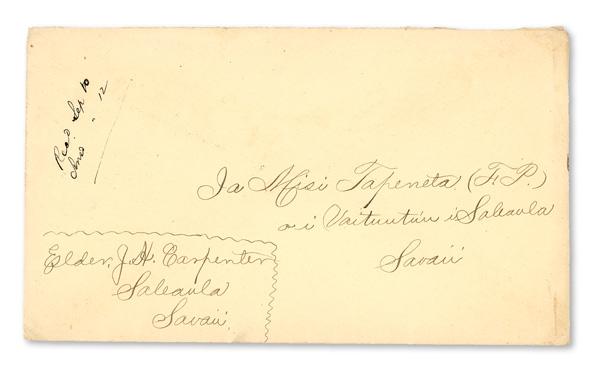 Recd Sep 10
Ans " 12
Ia Misi Tapeneta (F.P.)
o i Vaituutuu i Saleaula
Savaii
Elder, J.H. Carpenter
Saleaula
Savaii.